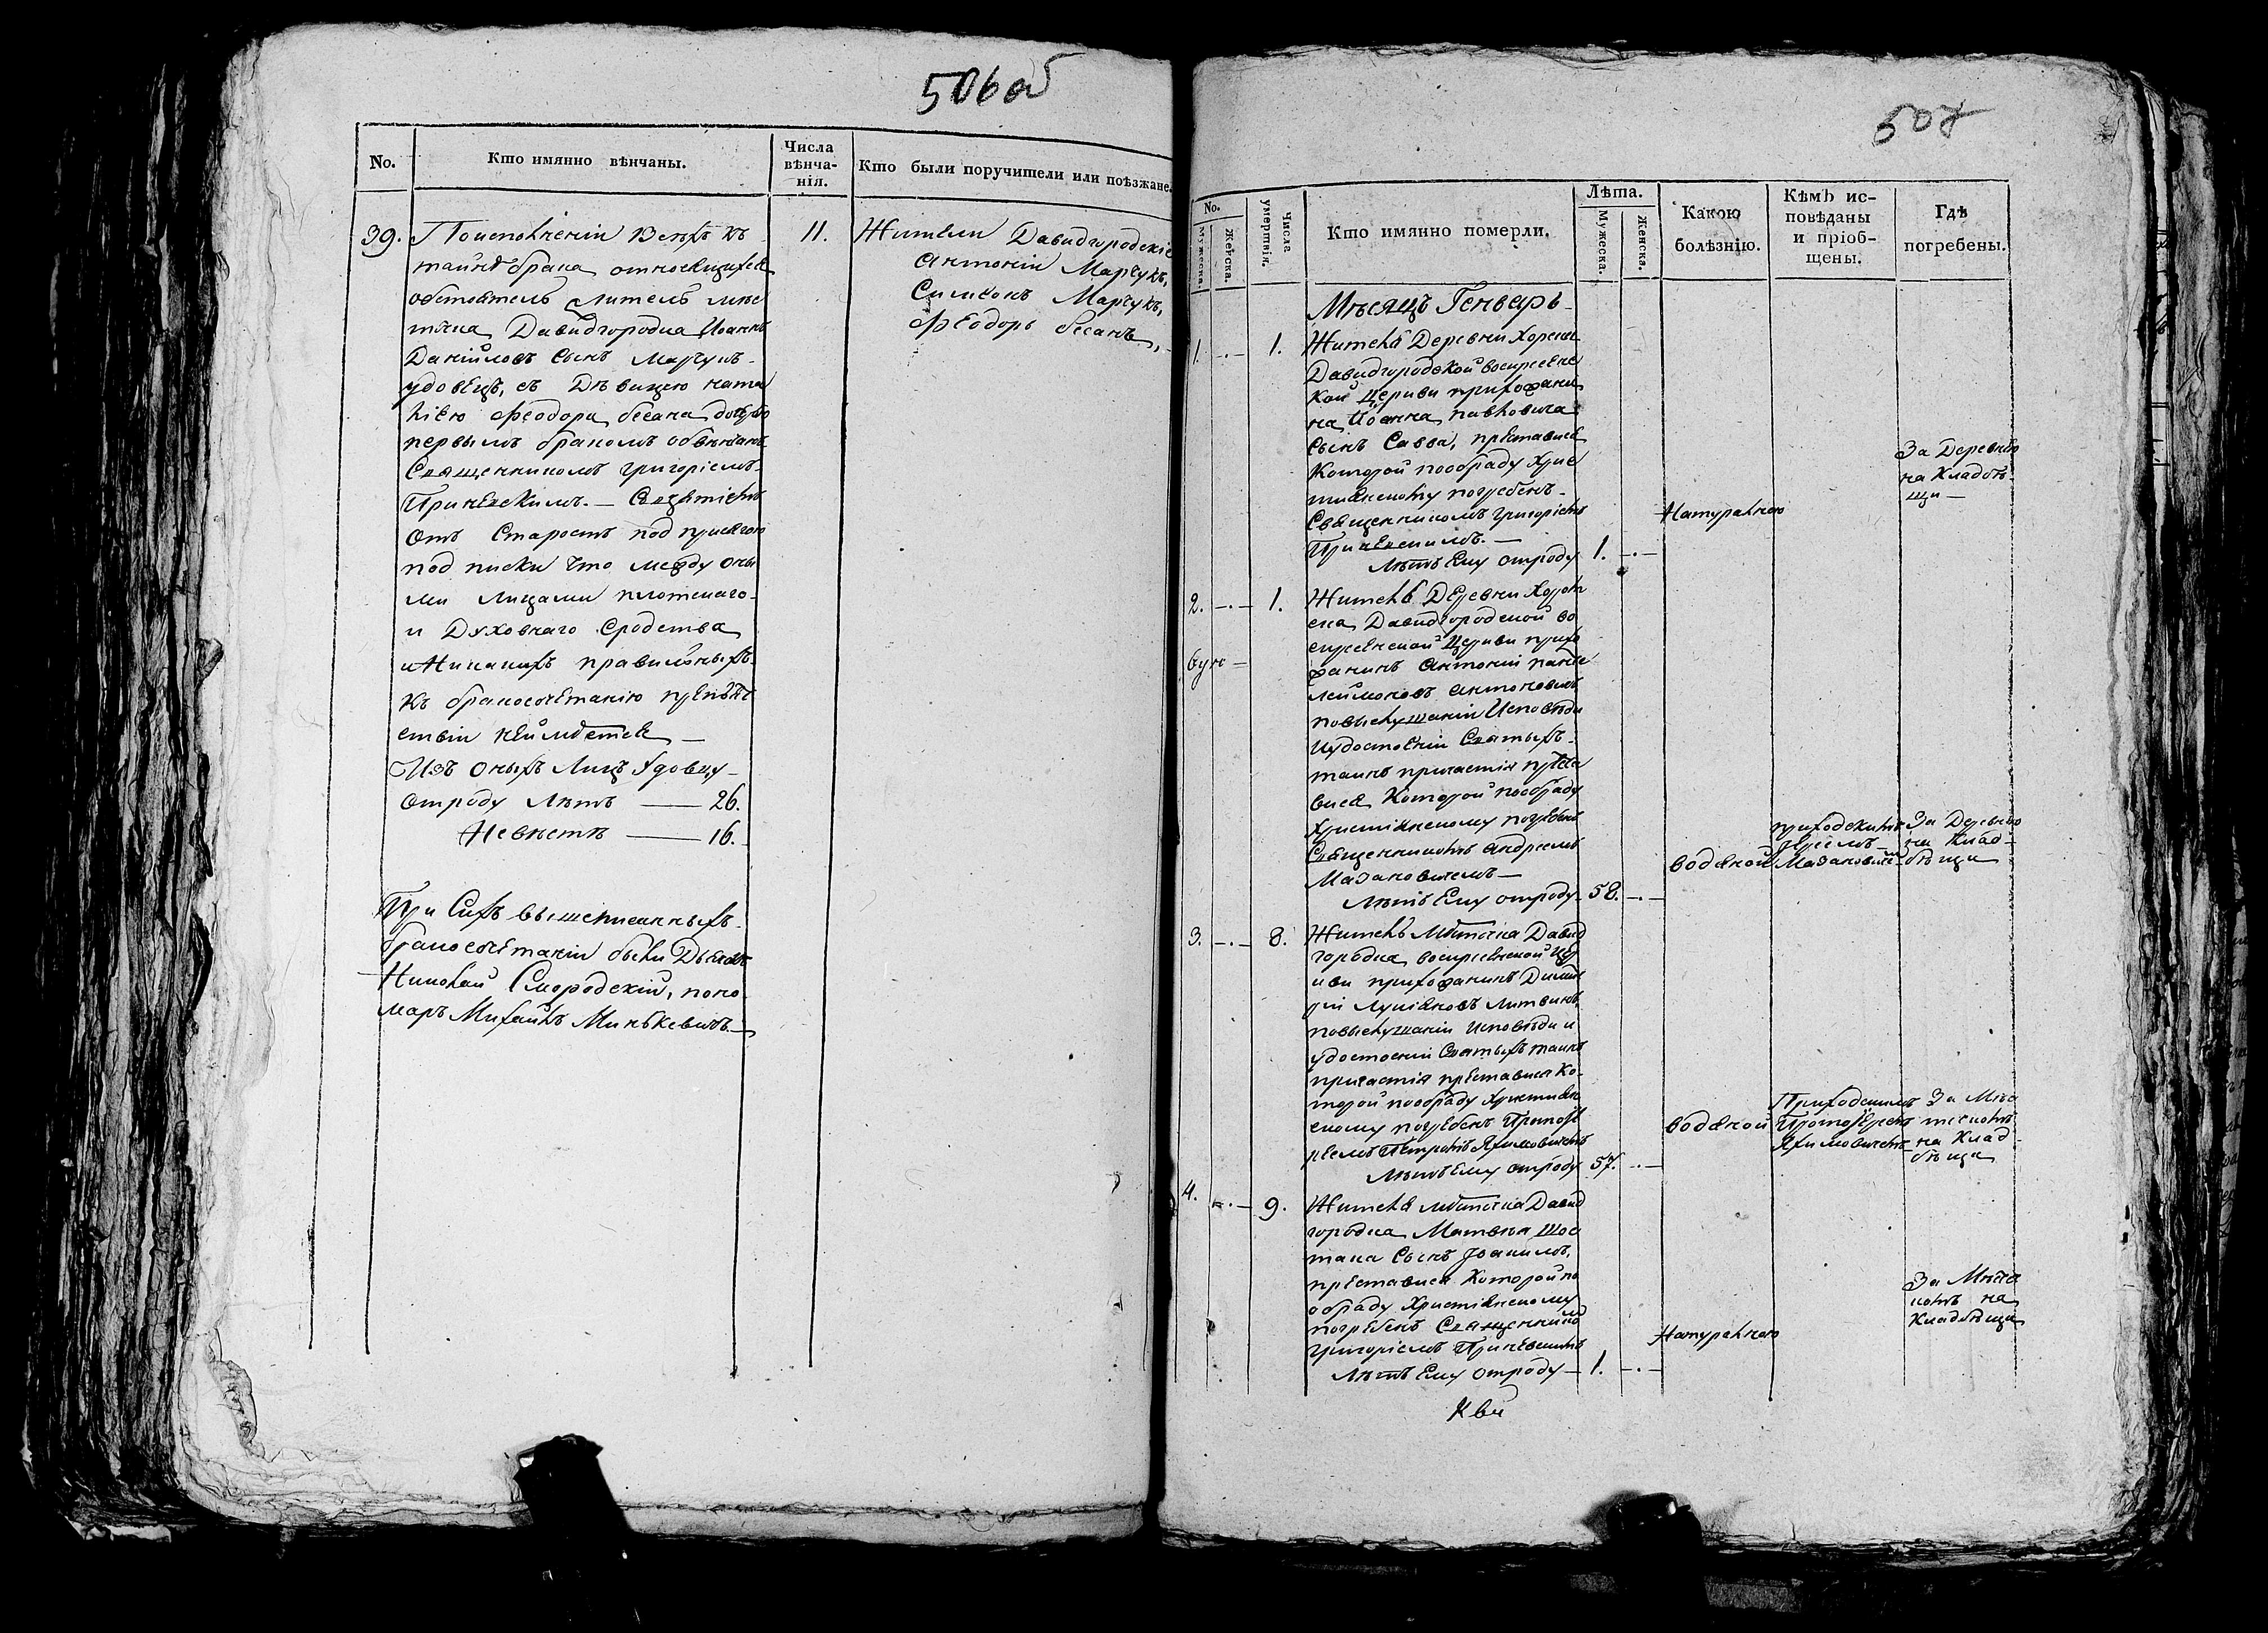 506 об
No.
Кто имянно вѣнчаны.
Числа
вѣнча-
нія.
Кто были поручители или поѣзжане.
39.
По исполненіи Всѣхъ къ
тайнѣ брака относящихся
обстоятель Житель мѣс
течка Давидгородка Иоаннъ
Даніиловъ Сынъ Марчукъ
удовецъ, съ Дѣвицею ната
ліею Феодора бесана дочерью
первымъ бракомъ обвѣнчанъ
Священникомъ Григоріемъ
Приневскимъ.
Отъ Старостъ под присягою
под писки что между оны
ми Лицами плотскаго
и Духовнаго Сродства
и Никакихъ правильныхъ
къ бракосочетанію препят
ствіи неимѣется —
Изъ оныхъ Лицъ Удовцу
отроду лѣтъ — 26.
Невѣстѣ — 16.
При Сихъ вышеписанныхъ
бракосочетаніи были Дьячокъ
Николай Смородскій, поно
марь Михаилъ Минькевичъ —
11.
Жители Давидгородскіе
Антоній Марчукъ,
Симеонъ Марчукъ,
Феодоръ бесанъ,
507
No.
Мужеска.
Женска.
Числа
умертвія.
Кто имянно померли.
Лѣта.
Мужеска.
Женска.
Какою
болѣзнію.
Кѣмъ ис-
повѣданы
и пріоб-
щены.
Гдѣ
погребены.
Мѣсяцъ Генварь
1. 1. Жителя Деревни
Давидгородской воскресенс
кой Церкви прихожани
на Иоанна павловича
Сынъ Савва, преставися
Которой пообряду Хрис
тіянскому погребенъ
Священникомъ Григоріемъ
Приневскимъ. —
Лѣтъ Ему отроду 1.
Натуральною
За Деревнею
на Кладбѣ
щи —
2. 1. Житель Деревни Хорон
ска Давидгородской во
скресенской Церкви прихо
жанинъ Антоній панте
леймоновъ Антоновичъ
повыслушаніи Исповѣди
Иудостоеніи Святыхъ
таинъ причастія преста
вися Которой пообряду
Христіянскому погребенъ
Священникомъ Андреемъ
Мазановичемъ —
Лѣтъ Ему отроду 58.
водяной
приходскимъ
Иереемъ
Мазановичем
За Деревнею
на Клад-
бѣщи
3. 8. Житель мѣстечка Давид
городка воскресенской Цер
кви прихожанинъ Дими
трій Лукіяновъ Литвинъ
повыслушаніи исповѣди и
удостоеніи Святыхъ таинъ
причастія преставися Ко-
торой пообряду Християн
скому погребенъ Протоіе
реемъ Петромъ Якимовичемъ
Лѣтъ Ему отроду 57.
водяной
Приходскимъ
Протоіереемъ
Якимовичемъ
За Мѣс
течкомъ
на Клад
бѣщи
4. 9. Жителя мѣстечка Давид
городка Матвѣя Шос
така Сынъ Иоакимъ,
преставися Которой по
обряду Христіянскому
погребенъ Священнико
Григоріемъ Приневскимъ
Лѣтъ Ему отроду — 1.
Натуральною
За Мѣстеч
комъ на
Кладбѣщи